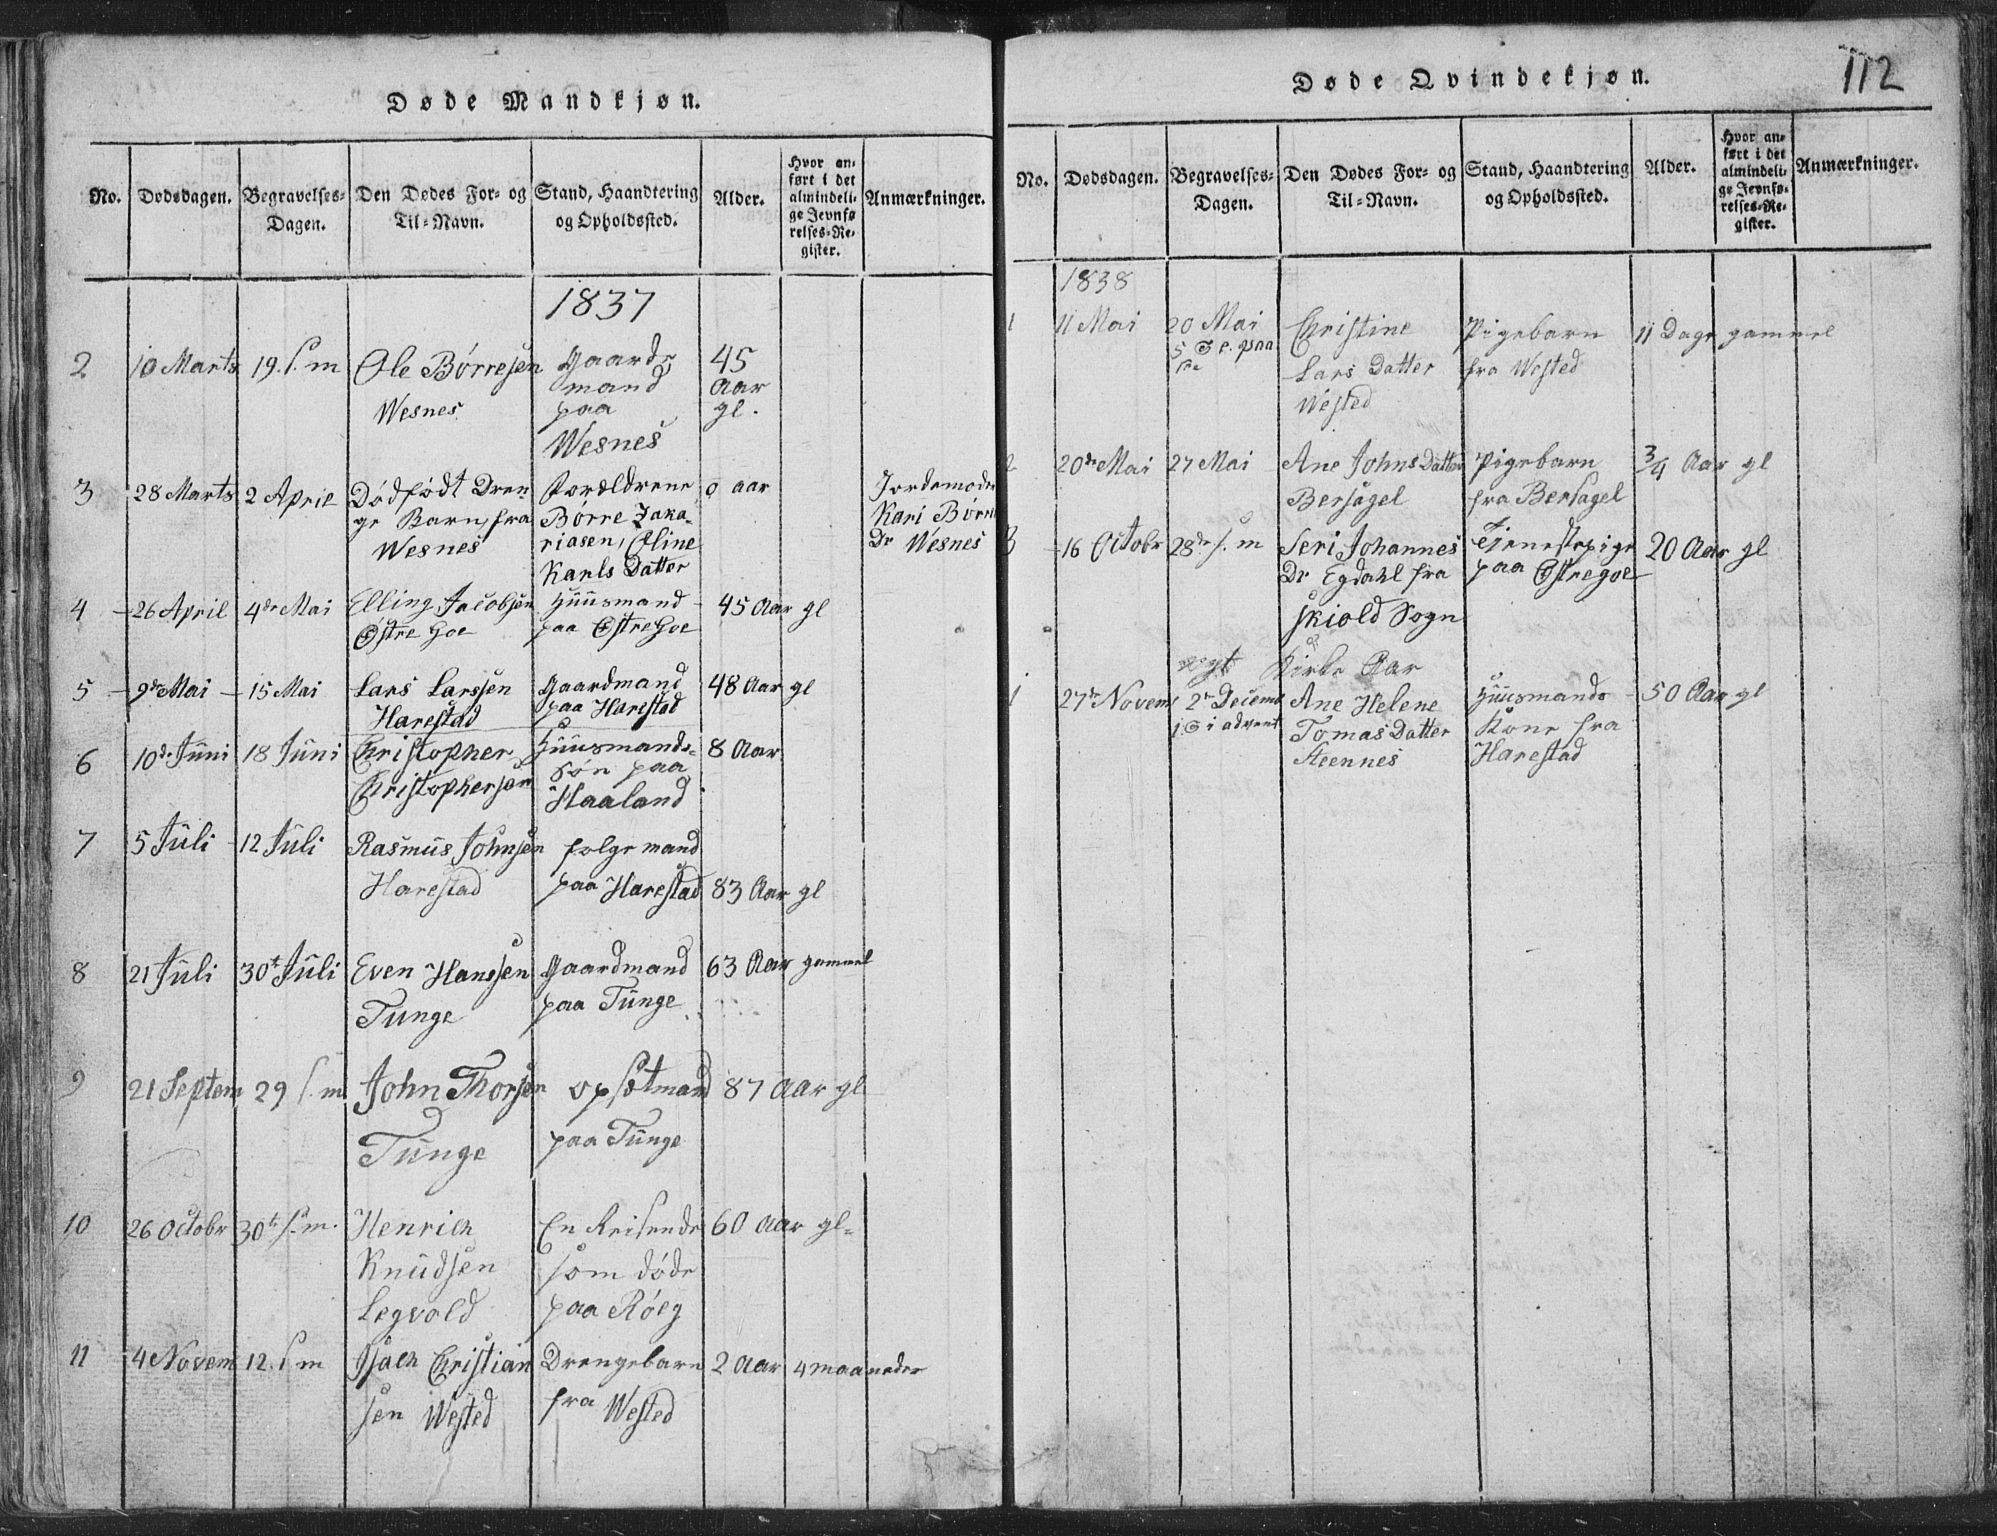 Døde Mandkjøn.
No. Dødsdagen. Begravelses-Dagen. Den Dødes For- og Til-Navn. Stand, Haandtering og Opholdssted. Alder. Hvor anført i det almindelige Jevnførelses-Register. Anmærkninger.
1837
2 10 Marts 19. s. m Ole Børresen Gaards 45
mand Aar
Wesnes paa gl.
Wesnes
3 28 Marts 2 April Dødfødt Dren Forældrene 0 aar Jordemoder
ge Barn, fra Børre Zaka- Kari Børre
Wesnes riasen, Oline Dr Wesnes
Karls Datter
4 - 26 April 4de Mai Elling Jacobsen Huusmand 45 Aar gl
Østre Goe paa Østre Goe
5 - 9de Mai - 15 Mai Lars Larssen Gaardmand 48 Aar gl
Harestad paa Harestad
6 10de Juni 18 Juni Christopher Huusmands- 8 Aar
Christophersen Søn paa
Haaland
7 5 Juli - 12 Juli Rasmus Johnsen folge mand
Harestad paa Harestad 83 Aar gl
8 21 Juli 30t Juli Even Hanssen Gaardmand 63 Aar gammel
Tunge paa Tunge
9 21 Septem 29 s. m John Thorsen opsetmand 87 Aar gl
Tunge paa Tunge
10 26 Octobr 30te s. m. Henrich En Reisende 60 Aar gl
Knudsen som døde
Legvold paa Røeg
11 4 Novem 12. s m Isach Christian Drengebarn 2 Aar 4 maaneder
sen Wested fra Wested
Døde Qvindekjøn.
112
No. Dødsdagen. Begravelses-Dagen. Den Dødes For- og Til-Navn. Stand, Haandtering og Opholdssted. Alder. Hvor anført i det almindelige Jevnførelses-Register. Anmærkninger.
1838
1 11 Mai 20 Mai Christine Pigebarn 11 Dage gammel
5 S e. paa
Lars Datter fra Wested
Wested
2 20de Mai 27 Mai Ane Johns Datter Pigebarn 3/4 Aar gl
Bersagel fra Bersagel
3 - 16 Octobr 28de s. m Seri Johannes Tjenestepige 20 Aar gl
Dr Egdahl fra paa Østregoe
Skiold Sogn
nyt Kirke Aar
1 27de Novem 2n Decemb Ane Helene Huusmands 50 Aar gl
1 S i advent Tomas Datter Kone fra
Steennes Harestad